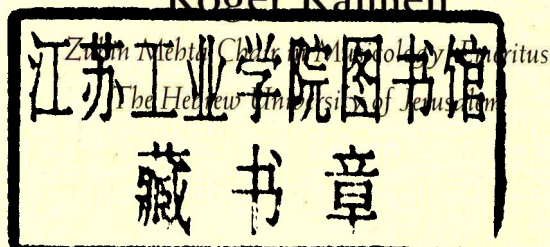 Roger Kamien
Zubin Mehta Chair in Musicology Emeritus
The Hebrew University of Jerusalem
江苏工业学院图书馆
藏书章